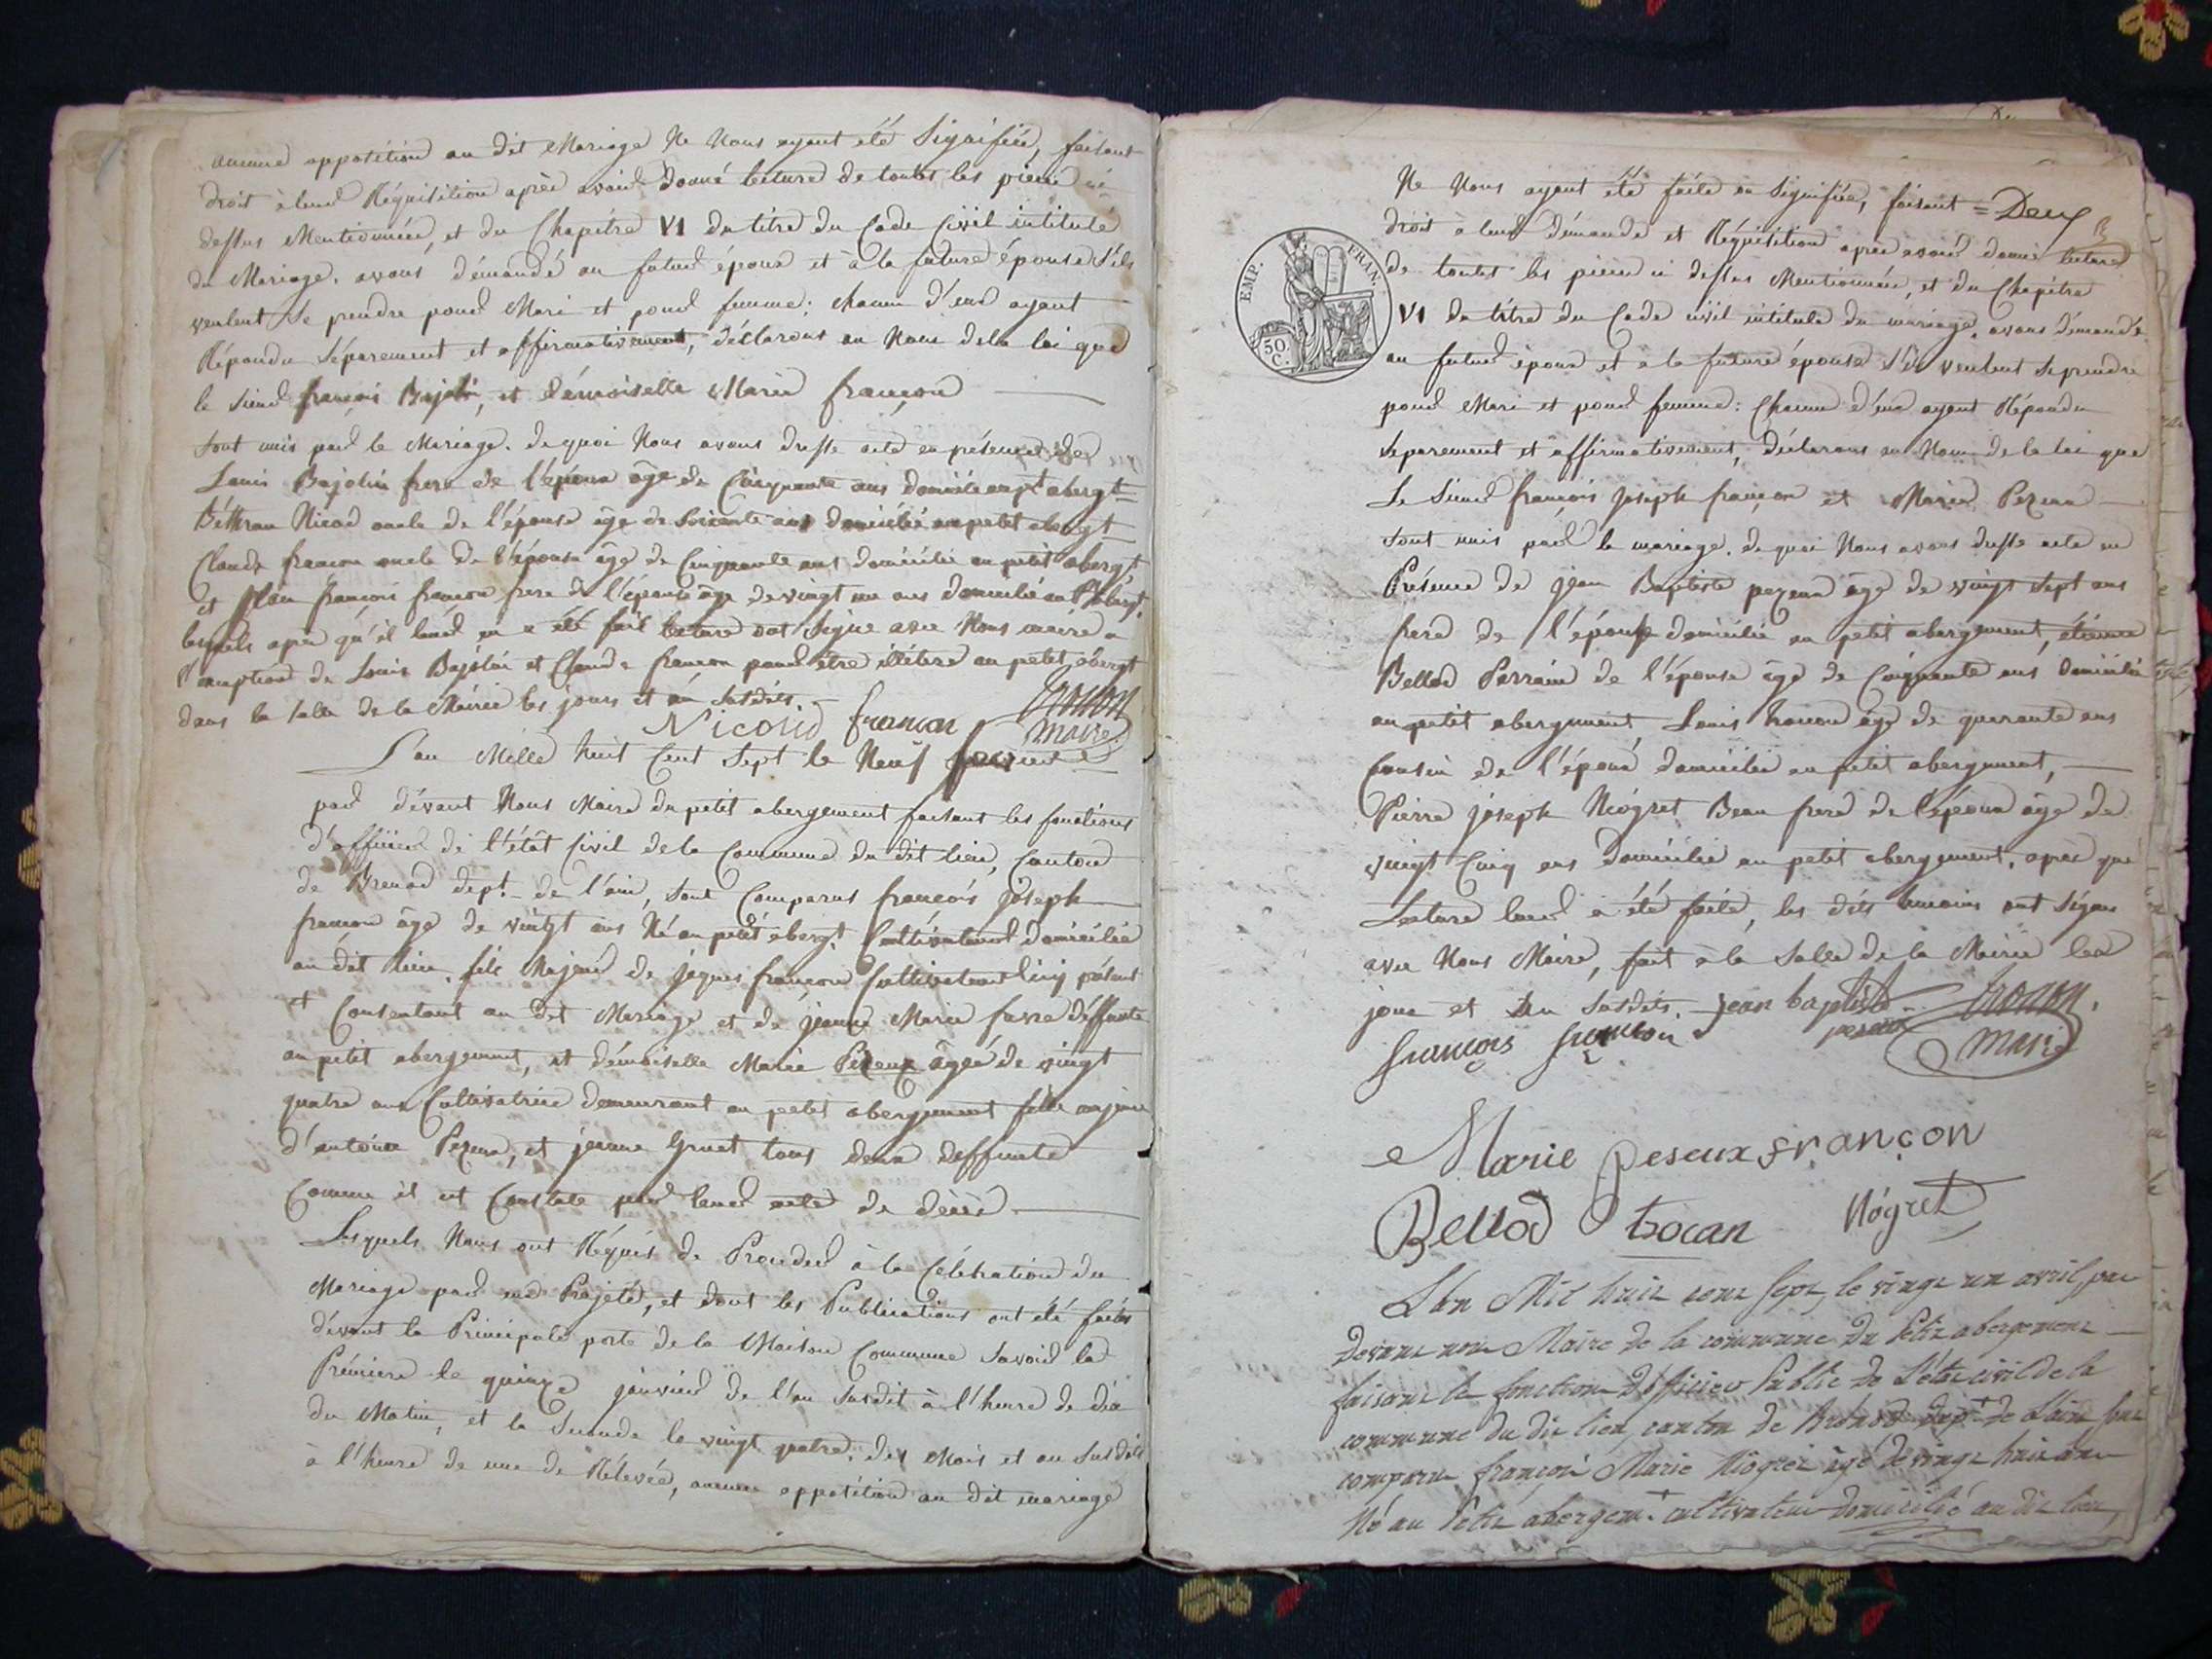 aucune opposition au dit Mariage Ne Nous ayant été Signifiée, faisant
droit à leur Réquisition après avoir donné lecture de toutes les pieces ci-
dessus Mentionnées, et du Chapitre VI du titre du Code Civil intitulé
du Mariage. avons démandé au futur époux et à la future épouse S'ils
veulent Se prendre pour Mari et pour femme: chacun d'eux ayant
Répondu Séparement et affirmativement, déclarons au Nom de la loi que
le Sieur françois Bajolin, et démoiselle Marie françon
Sont unis par le Mariage. de quoi Nous avons dressé acte en présence de
Louis Bajolin frere de l'époux âge de Cinquante ans domicilié au pt abergt
Nicod oncle de l'épouse âge de Soixante ans domicilié au petit abergt
Claude françon oncle de l'épouse âge de Cinquante ans domicilié au petit abergt
et françois françon frere de l'épouse âge de vingt un ans domicilié au
lesquels après qu'il leur en a été fait lecture ont Signé avec Nous maire a
l'exeption de Louis Bajolin et Claude françon pour être illétere au petit abergt
dans la Salle de la Mairie les jours et an Susdits.
Nicoud francon tronon maire
L'an Mille huit Cent Sept le Neuf fevrier
par dévant Nous Maire du petit abergement faisant les fonctions
d'officier de l'étât Civil de la Commune du dit lieu, Canton
de Brenod dept. de l'ain, Sont Comparus françois Joseph
françon âge de vingt ans Né au petit abergt. Cultivateur domicilié
au dit lieu. fils Majeur de jaques françon Cultivateur ici présent
et Consentant au dit Mariage et de jeanne Marie favre déffunte
au petit abergement, et démoiselle Marie Pezeux âgée de vingt
quatre ans Cultivatrice demeurant au petit abergement fille majeure
d'antoine Pezeux, et jeanne Gruet tous deux deffunts
Comme il est Constaté par leur acte de décès.
Lesquels Nous ont Réquis de Proceder à la Célébration du
Mariage par eux Projeté, et dont les Publications ont été faites
dévant la Principale porte de la Maison Commune Savoir la
Prémiere le quinze janvier de l'an Susdit à l'heure de dix
du Matin, et la Seconde le vingt quatre des Mois et an Susdits
à l'heure de une de Rélevée, aucune opposition au dit mariage
Ne Nous ayant été faite ou Signifiée, faisant = Deux
droit à leur démande et Réquisition après avoir donné lecture
de toutes les pieces ci dessus Mentionnées, et du Chapitre
VI du titre du Code civil intitulé du mariage, avons démandé
au futur époux et à la future épouse S'ils veulent Se prendre
pour Mari et pour femme: Chacun d'eux ayant Répondu
Séparement et affirmativement, déclarons au Nom de la loi que
Le Sieur françois Joseph françon et Marie Pezeux
Sont unis par le mariage. de quoi Nous avons dressé acte en
Présence de jean Baptiste pezeux âge de vingt Sept ans
frere de l'épouse domicilié au petit abergement, étienne
Bellod Parrain de l'épouse âge de Cinquante ans domicilié
au petit abergement, Louis tronon âge de quarante ans
Cousin de l'époux domicilié au petit abergement,
Pierre joseph Niogret Beau frere de l'époux âge de
vingt Cinq ans domicilié au petit abergement. après que
Lecture leur a été faite, les dits temoins ont Signé
avec Nous Maire, fait à la Salle de la Mairie les
jour et an Susdits. jean baptiste peseux tronon
françois françon maire
Marie peseux françon
Bellod trocan Nogret
EMP. FRAN.
50 C.
L'an Mil huit cent Sept, le vingt un avril, par
devant nous Maire de la commune du Petit abergement
faisant la fonction d'officier Public de L'état civil de la
commune du dit lieu, canton de Brenod dept de L'ain sont
comparu françois Marie Niogret âgé de vingt huit ans
Né au Petit abergemt cultivateur domicilié au dit lieu,